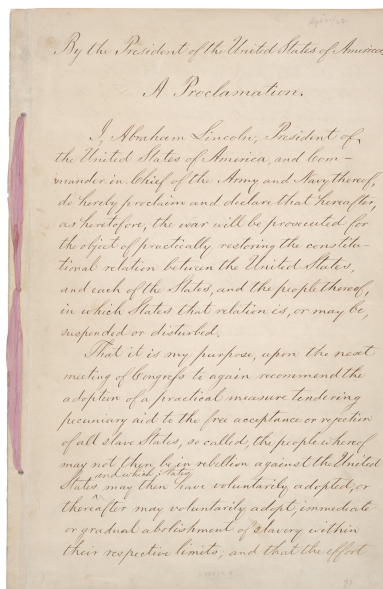 By the President of the United States of America,
A Proclamation.
I, Abraham Lincoln, President of
the United States of America, and Com-
mander-in-Chief of the Army and Navy thereof,
do hereby proclaim and declare that hereafter,
as heretofore, the war will be prosecuted for
the object of practically restoring the constitu-
tional relation between the United States,
and each of the States, and the people thereof,
in which States that relation is, or may be,
suspended or disturbed.
That it is my purpose, upon the next
meeting of Congress to again recommend the
adoption of a practical measure tendering
pecuniary aid to the free acceptance or rejection
of all slave States, so called, the people whereof
may not then be in rebellion against the United
and which States
States may then have voluntarily adopted, or
thereafter may voluntarily adopt, immediate
or gradual abolishment of slavery within
their respective limits; and that the effort